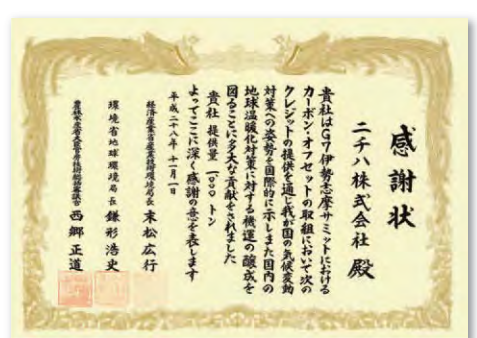 感謝状
ニチハ株式会社 殿
貴社はG7伊勢志摩サミットにおける
カーボン・オフセットの取組において次の
クレジットの提供を通じ我が国の気候変動
対策への姿勢を国際的に示しまた国内の
地球温暖化対策に対する機運の醸成を
図ることに多大な貢献をされました
貴社 提供量 一〇〇〇 トン
よってここに深く感謝の意を表します
平成二十八年 十一月一日
経済産業省産業技術環境局長 末松広行
環境省地球環境局長 鎌形浩史
農林水産省大臣官房技術総括審議官 西郷正道